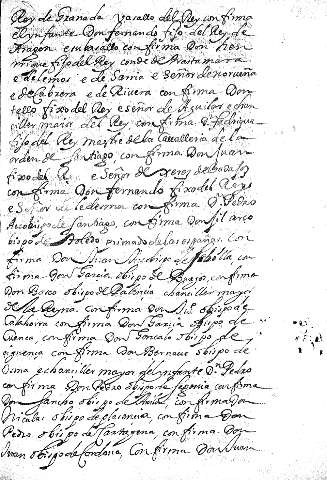 Rey de Granada Vasallo del Rey confirma
el ynfante Don fernando fijo del Rey de
Aragon e vasallo confirma Don hen
rrique fijo del Rey conde de trastamara
e de lemos e de Sarria e Señor de noroeña
e de Cabrera e de Rivera confirma Don
tello fixo del Rey e señor de Aguilar e chan
ciller maior del Rey confirma D. fadrique
fijo del Rey maestre de la Cavalleria de la
orden de Santiago confirma Don Juan
fixo del Rey e Señor de Xerez de badajoz
confirma Don fernando fixo del Rey
e Señor de ledesma confirma D. Pedro
Arzobispo de Santiago confirma Don Gil arzo
bispo de Toledo primado de las españas con
firma Don Arzobispo de Sevilla con
firma Don Garcia obispo de Burgos confirma
Don Basco obispo de Palencia chanciller mayor
de la Reyna confirma Don obispo de
Calahorra confirma Don Garcia obispo de
Cuenca confirma Don Gonzalo obispo de
siguenza confirma Don Bernave obispo de
Osma e chanciller mayor del infante Dn Pedro
confirma Don Pedro obispo de segovia confirma
Don Sancho obispo de Avila confirma Don
Nicolas obispo de confirma Don
Pedro obispo de Cartagena confirma Don
Juan obispo de Cordova confirma Don Juan